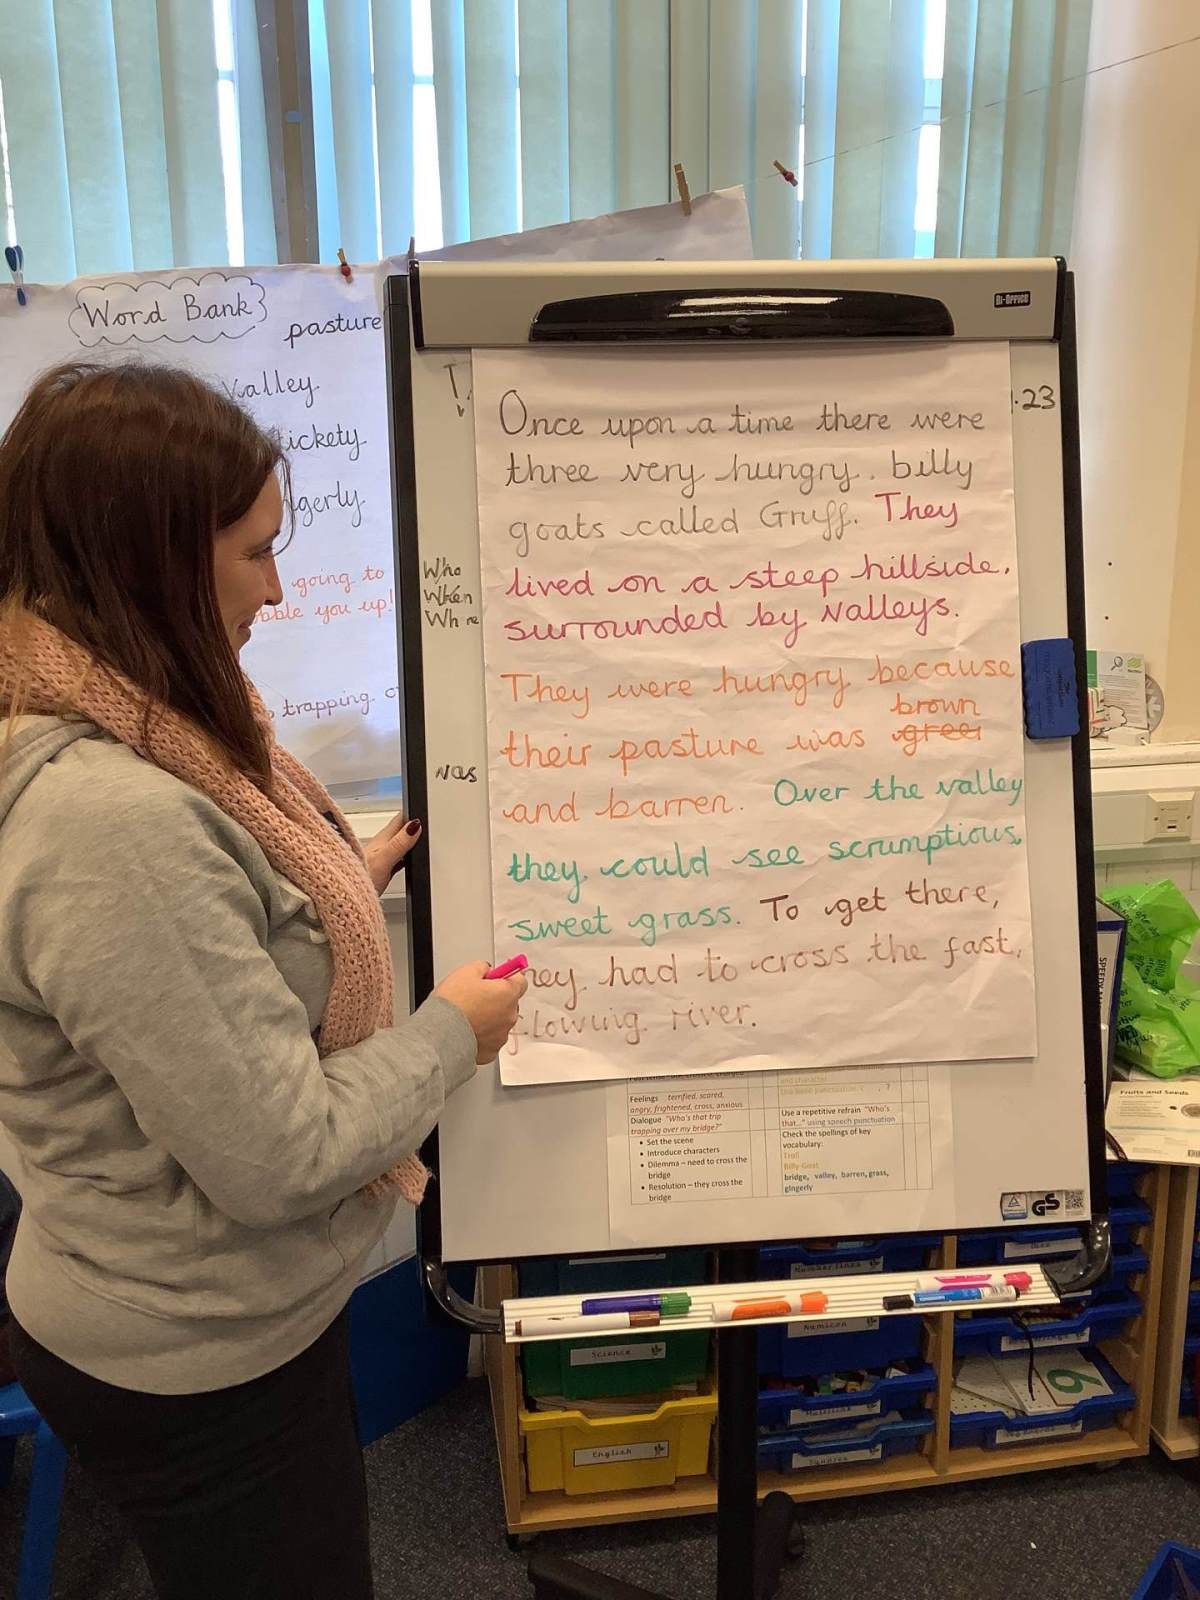 Word Bank
pasture
Valley
going to
you up!
trapping
BI-OFFICE
.23
Who
When
Where
was
Once upon a time there were
three very hungry, billy
goats called Gruff. They
lived on a steep hillside,
surrounded by valleys.
They were hungry because
brown
their pasture was green
and barren. Over the valley
they could see scrumptious,
sweet grass. To get there,
they had to cross the fast,
flowing river.
and character
Feelings terrified, scared,
angry, frightened, cross, anxious
Dialogue "Who's that trip
trapping over my bridge?"
• Set the scene
• Introduce characters
• Dilemma – need to cross the
bridge
• Resolution – they cross the
bridge
Use a repetitive refrain "Who's
that..." using speech punctuation
Check the spellings of key
vocabulary:
Troll
Billy Goat
bridge, valley, barren, grass,
gingerly
GS
Fruits and Seeds
Number lines
Numicon
Science
English
6